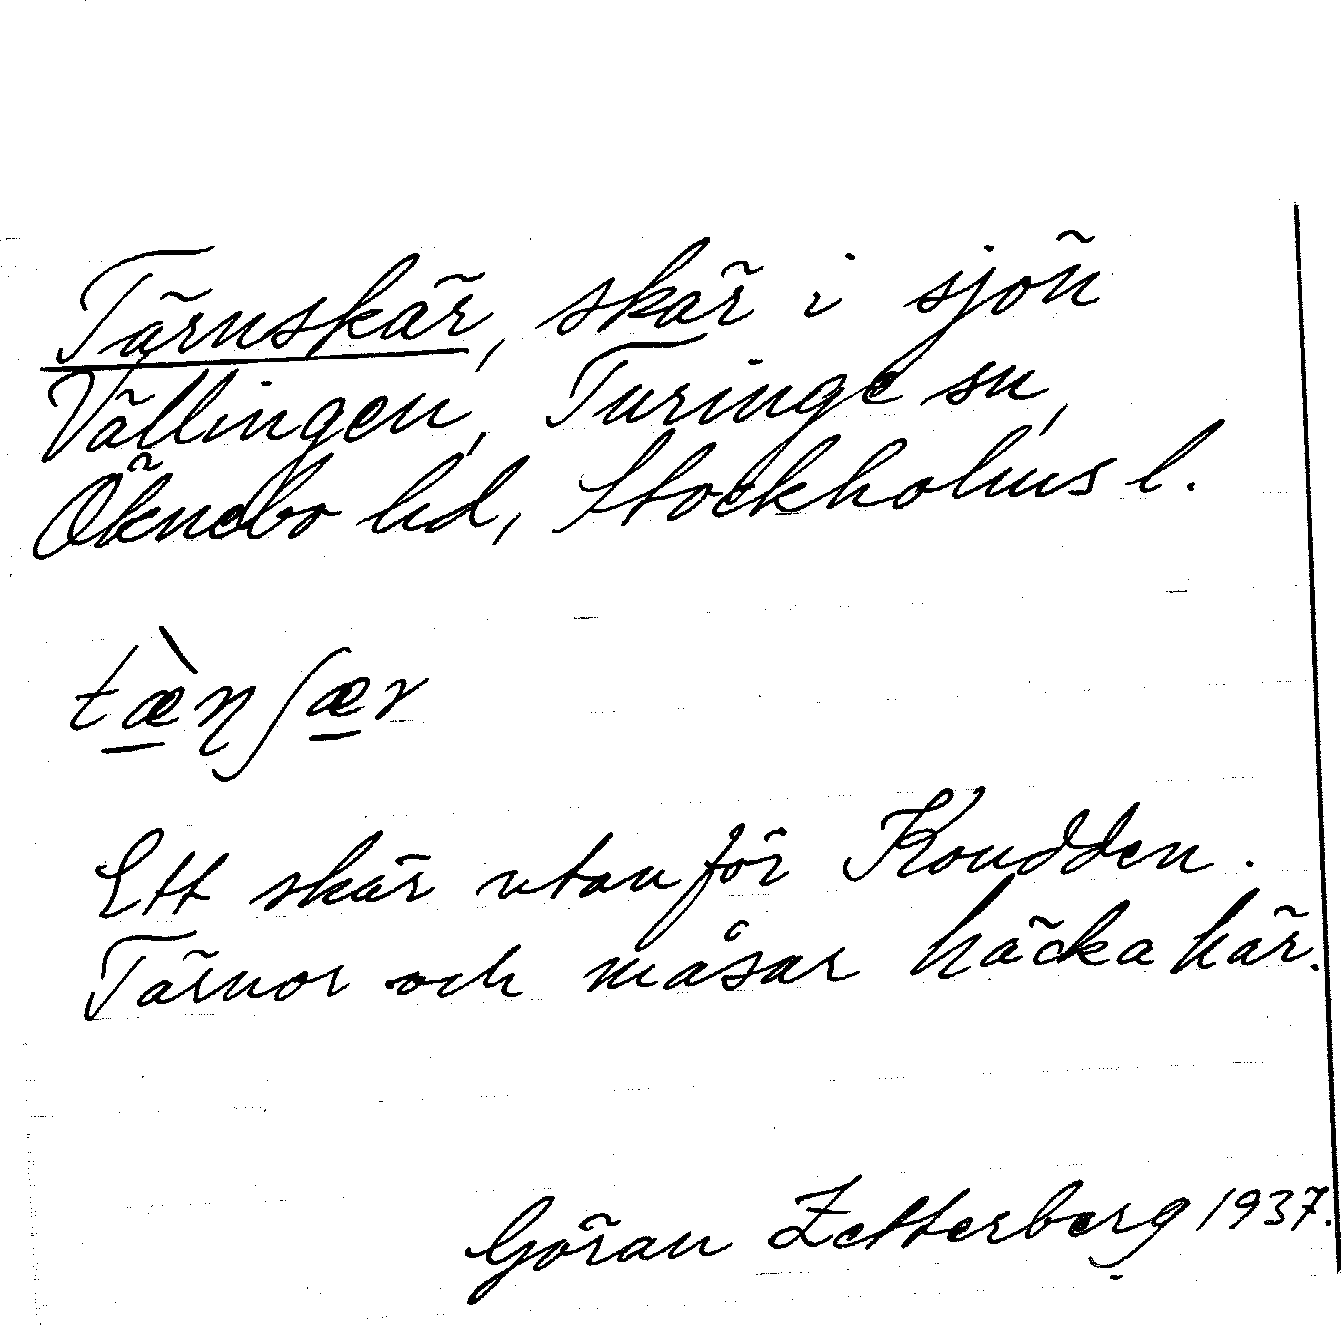 Tärnskär, skär i sjön
Vällingen, Turinge sn,
Öknebo hd, Stockholms l.
tæ̀ɳʃær
Ett skär utanför Koudden.
Tärnor och måsar häcka här.
Göran Zetterberg 1937.